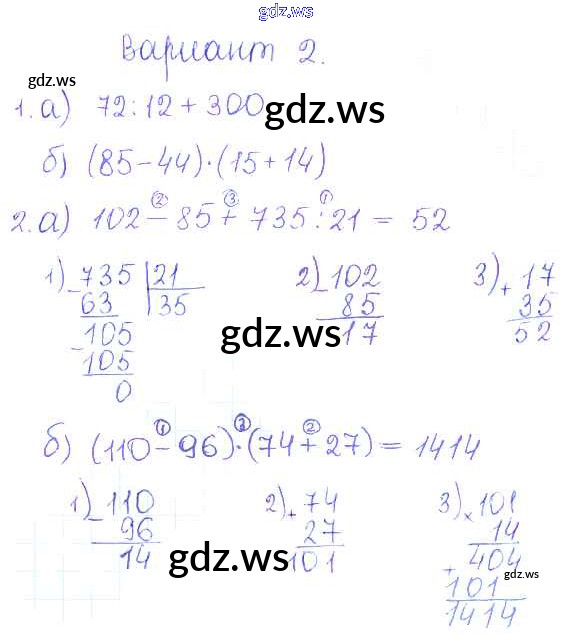 gdz.ws
Вариант 2.
gdz.ws
1. а) 72:12 + 300 gdz.ws
б) (85-44)·(15+14)
② ③ ①
2. а) 102 - 85 + 735 : 21 = 52
1) 735 | 21 2) 102 3) + 17
- 63 35 - 85 35
105 17 52
- 105 gdz.ws
0
① ③ ②
б) (110 - 96)·(74 + 27) = 1414
1) 110 2) + 74 3) × 101
- 96 27 14
14 gdz.ws 101 + 404 gdz.ws
101
1414